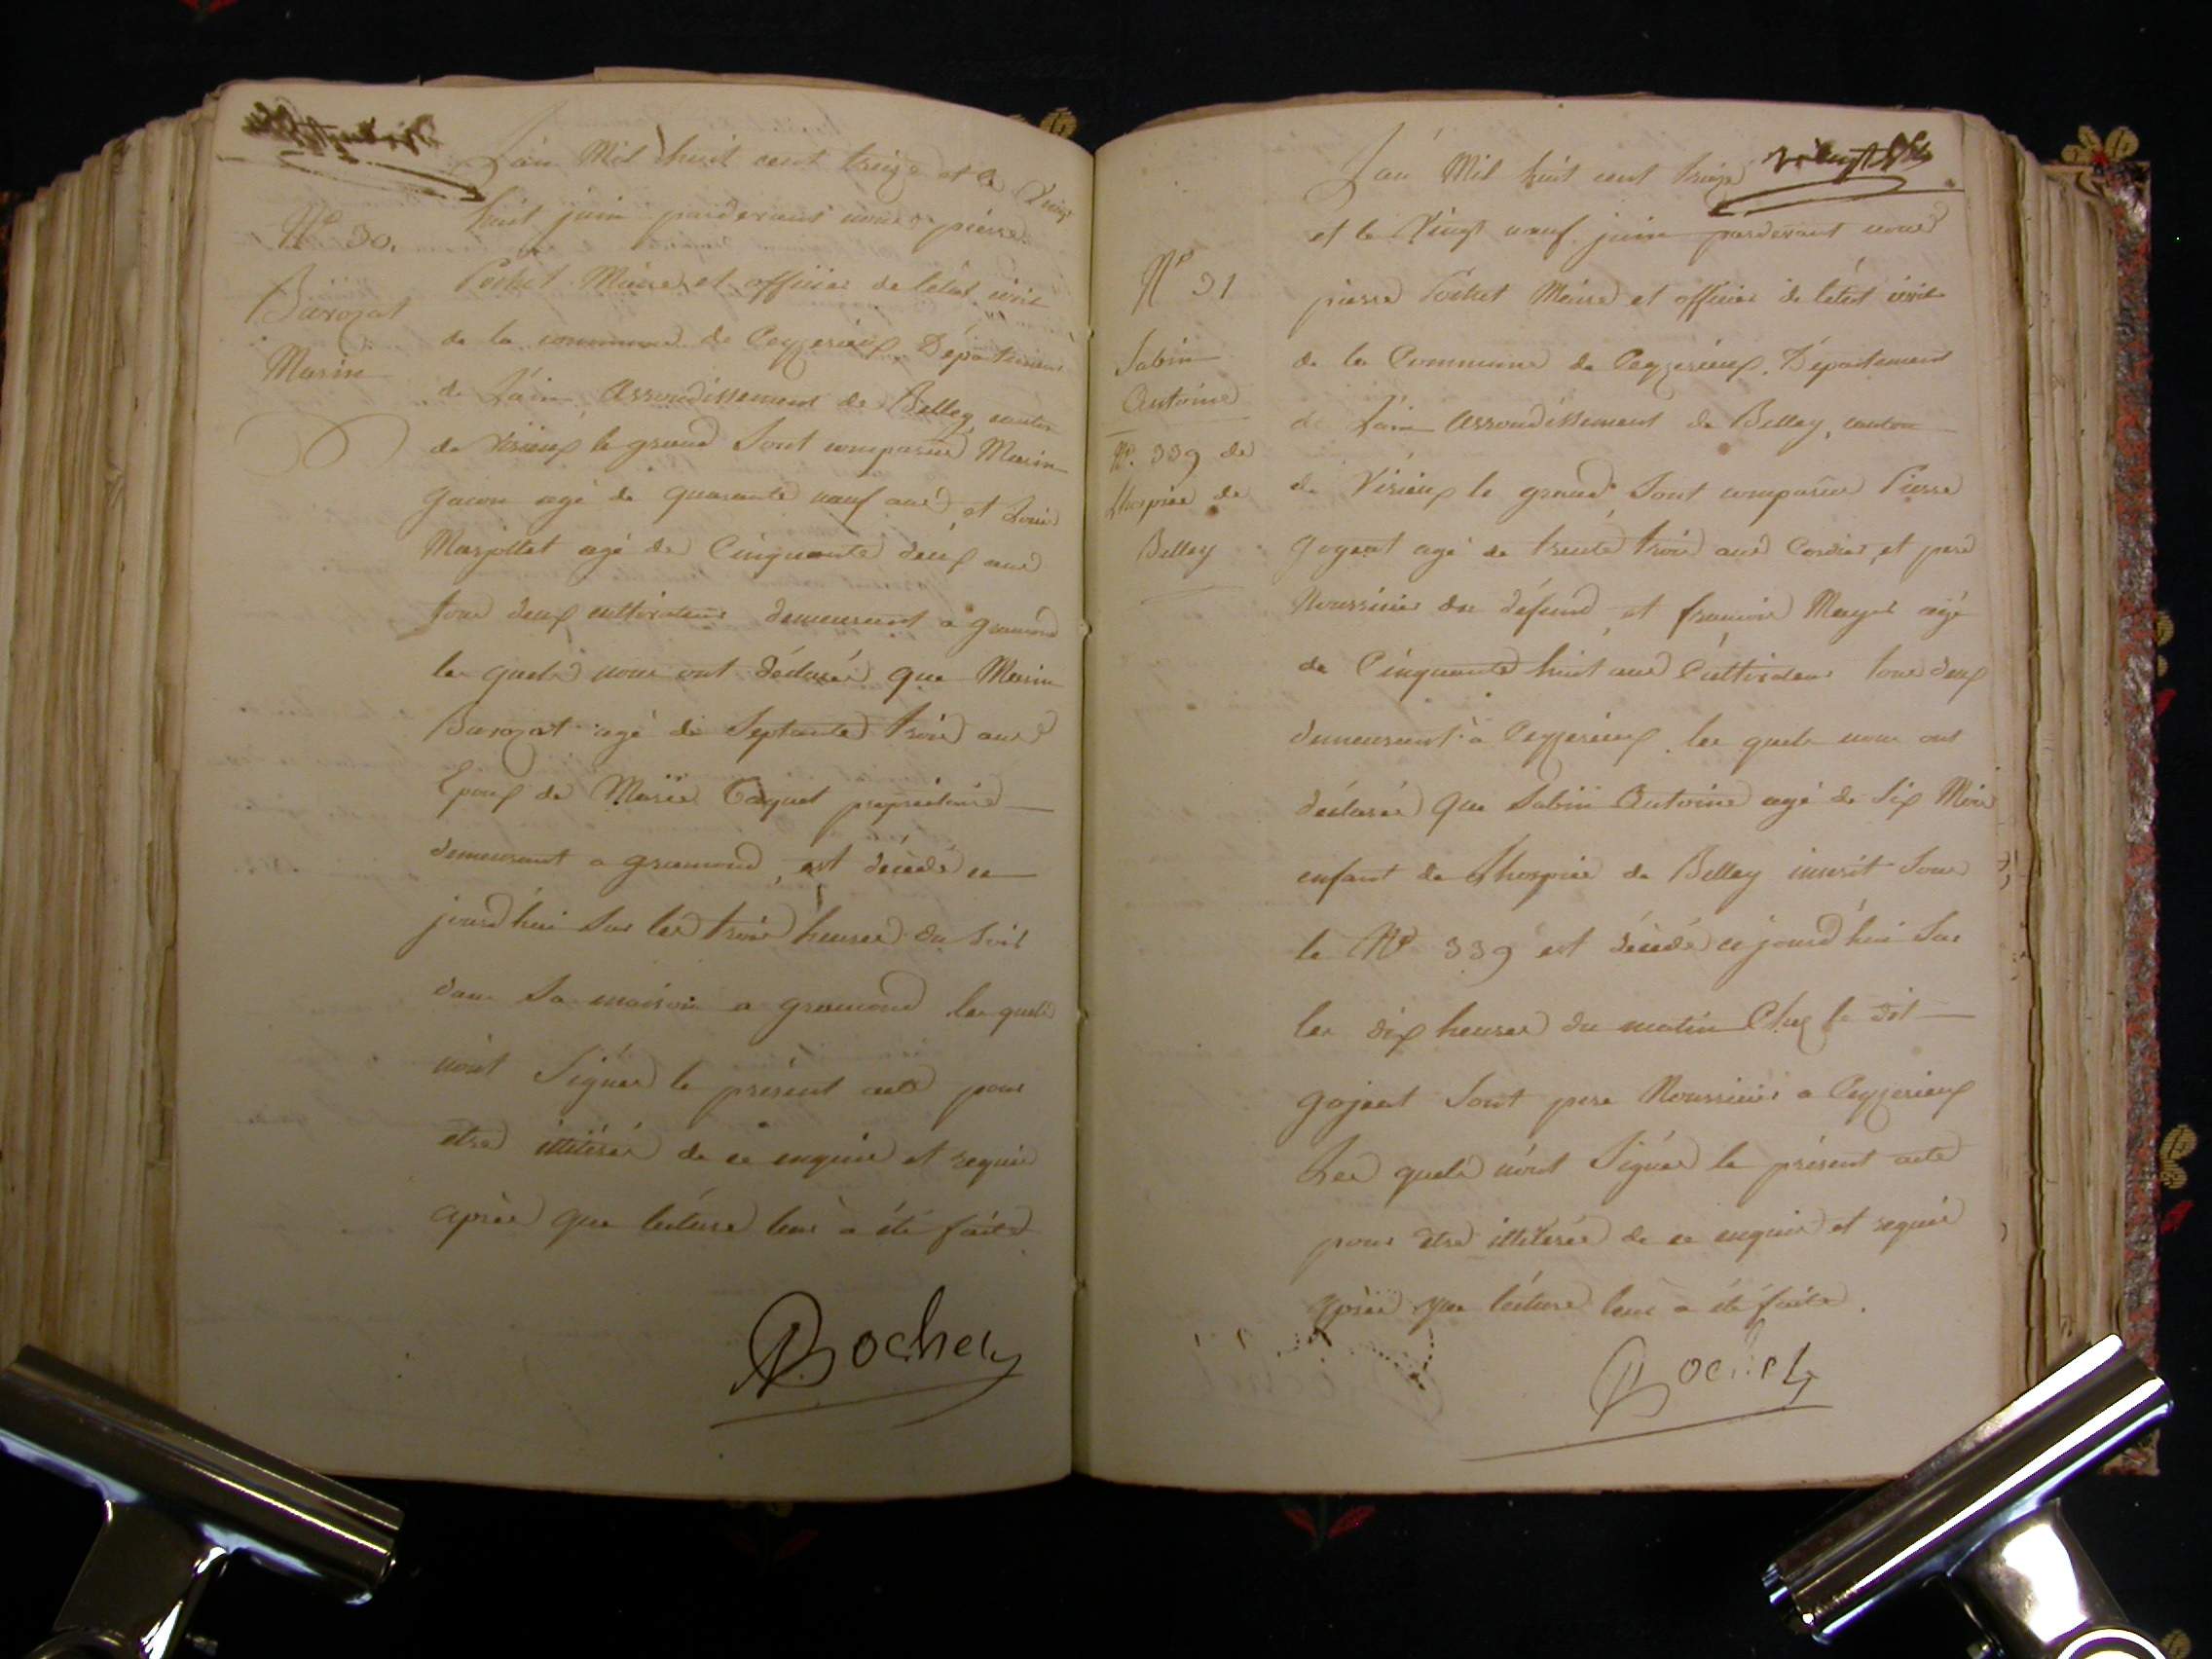 L'an Mil huit cent treize et le Vingt
huit juin pardevant nous pierre
Pochet Maire et officier de létat civil
de la commune de Ceyzerieux Département
de L'ain Arrondissement de Belley canton
de Virieux le grand Sont comparus Marin
Gacon agé de quarante neuf ans, et Louis
Marjollet agé de Cinquante deux ans
tous deux cultivateurs demeurant a gramond
les quels nous ont déclarés que Marin
Barozat agé de Septante trois ans
Epoux de Marie Caquet propriétaire
demeurant a gramond, est décédé ce
jourd'hui Sur les trois heures du Soir
dans Sa maison a gramond les quels
n'ont Signés le présent acte pour
etre illitérés de ce enquis et requis
après que lecture leur a été faite
Pochet
N° 30.
Barozat
Marin
vingt six
L'an Mil huit cent treize
et le Vingt neuf juin pardevant nous
pierre Pochet Maire et officier de létat civil
de la Commune de Ceyzerieux. Département
de L'ain Arrondissement de Belley, canton
de Virieux le grand, Sont comparus Pierre
Gojeat agé de trente trois ans Cordier, et pere
Nourricier du défund, et francois Mayet agé
de Cinquante huit ans Cultivateur tous deux
demeurant à Ceyzerieux. les quels nous ont
déclarés que Sabin Antoine agé de Six Mois
enfant de Lhospice de Belley inscrit Sous
le N° 339 est décédé ce jourd'hui Sur
les dix heures du matin Chez le dit
gojeat Sont pere Nourricier a Ceyzerieux
Les quels n'ont Signés le présent acte
pour etre illitérés de ce enquis et requis
Après que lecture leur a été faite.
Pochet
N° 31
Sabin
Antoine
N°. 339 de
Lhospice de
Belley